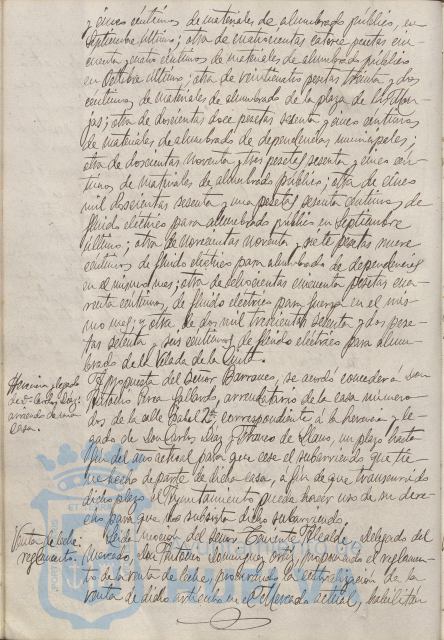 y cinco centimos de materiales de alumbrado público, en
Septiembre último; otra de cuatrocientas catorce pesetas cin
cuenta y cuatro centimos de materiales de alumbrado público
en Octubre último; otra de veinticuatro pesetas treinta y dos
centimos, de materiales de alumbrado de la plaza de las Mon
jas; otra de doscientas doce pesetas sesenta y cinco centimos
de materiales de alumbrado de dependencias municipales;
otra de doscientas noventa y tres pesetas sesenta y cinco cen
timos de materiales de alumbrado público; otra de cinco
mil doscientas sesenta y una pesetas sesenta centimos, de
fluido eléctrico para alumbrado público en Septiembre
último; otra de novecientas noventa y siete pesetas nueve
centimos de fluido eléctrico para alumbrado de dependencias
en el mismo mes; otra de ochocientas cincuenta pesetas cua
renta centimos, de fluido eléctrico para fuerza en el mis
mo mes; y otra de dos mil trescientas setenta y dos pese
tas setenta y seis centimos de fluido eléctrico para alum
brado de la Velada de la Cinta.
Herencia y legado
de Dn. Carlos Díaz:
arriendo de una
casa.
A propuesta del Señor Barranco, se acordó conceder á Don
Gallardo, arrendatario de la casa número
dos de la calle Isabel 2ª correspondiente á la herencia y le
gado de Don Carlos Díaz y Franco de Llanos, un plazo hasta
fin del año actual para que cese el subarriendo que tie
ne hecho de parte de dicha casa, á fin de que transcurrido
dicho plazo el Ayuntamiento pueda hacer uso de su dere
cho para que no subsista dicho subarriendo.
Venta de leche:
reglamento.
Leida moción del Señor Teniente Alcalde, delegado del
Mercado, Don Domínguez Ortiz, proponiendo el reglamen
to de la venta de leche, procurando la centralización de la
venta de dicho artículo en el Mercado actual, habilitán